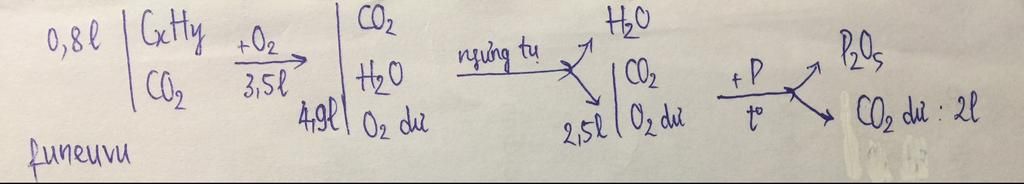 0,8l | CxHy CO2 +O2 3,5l → 4,9l | CO2 H2O O2 dư ngưng tụ → H2O
2,5l | CO2 O2 dư +P t° → P2O5
CO2 dư : 2l
funeuvu